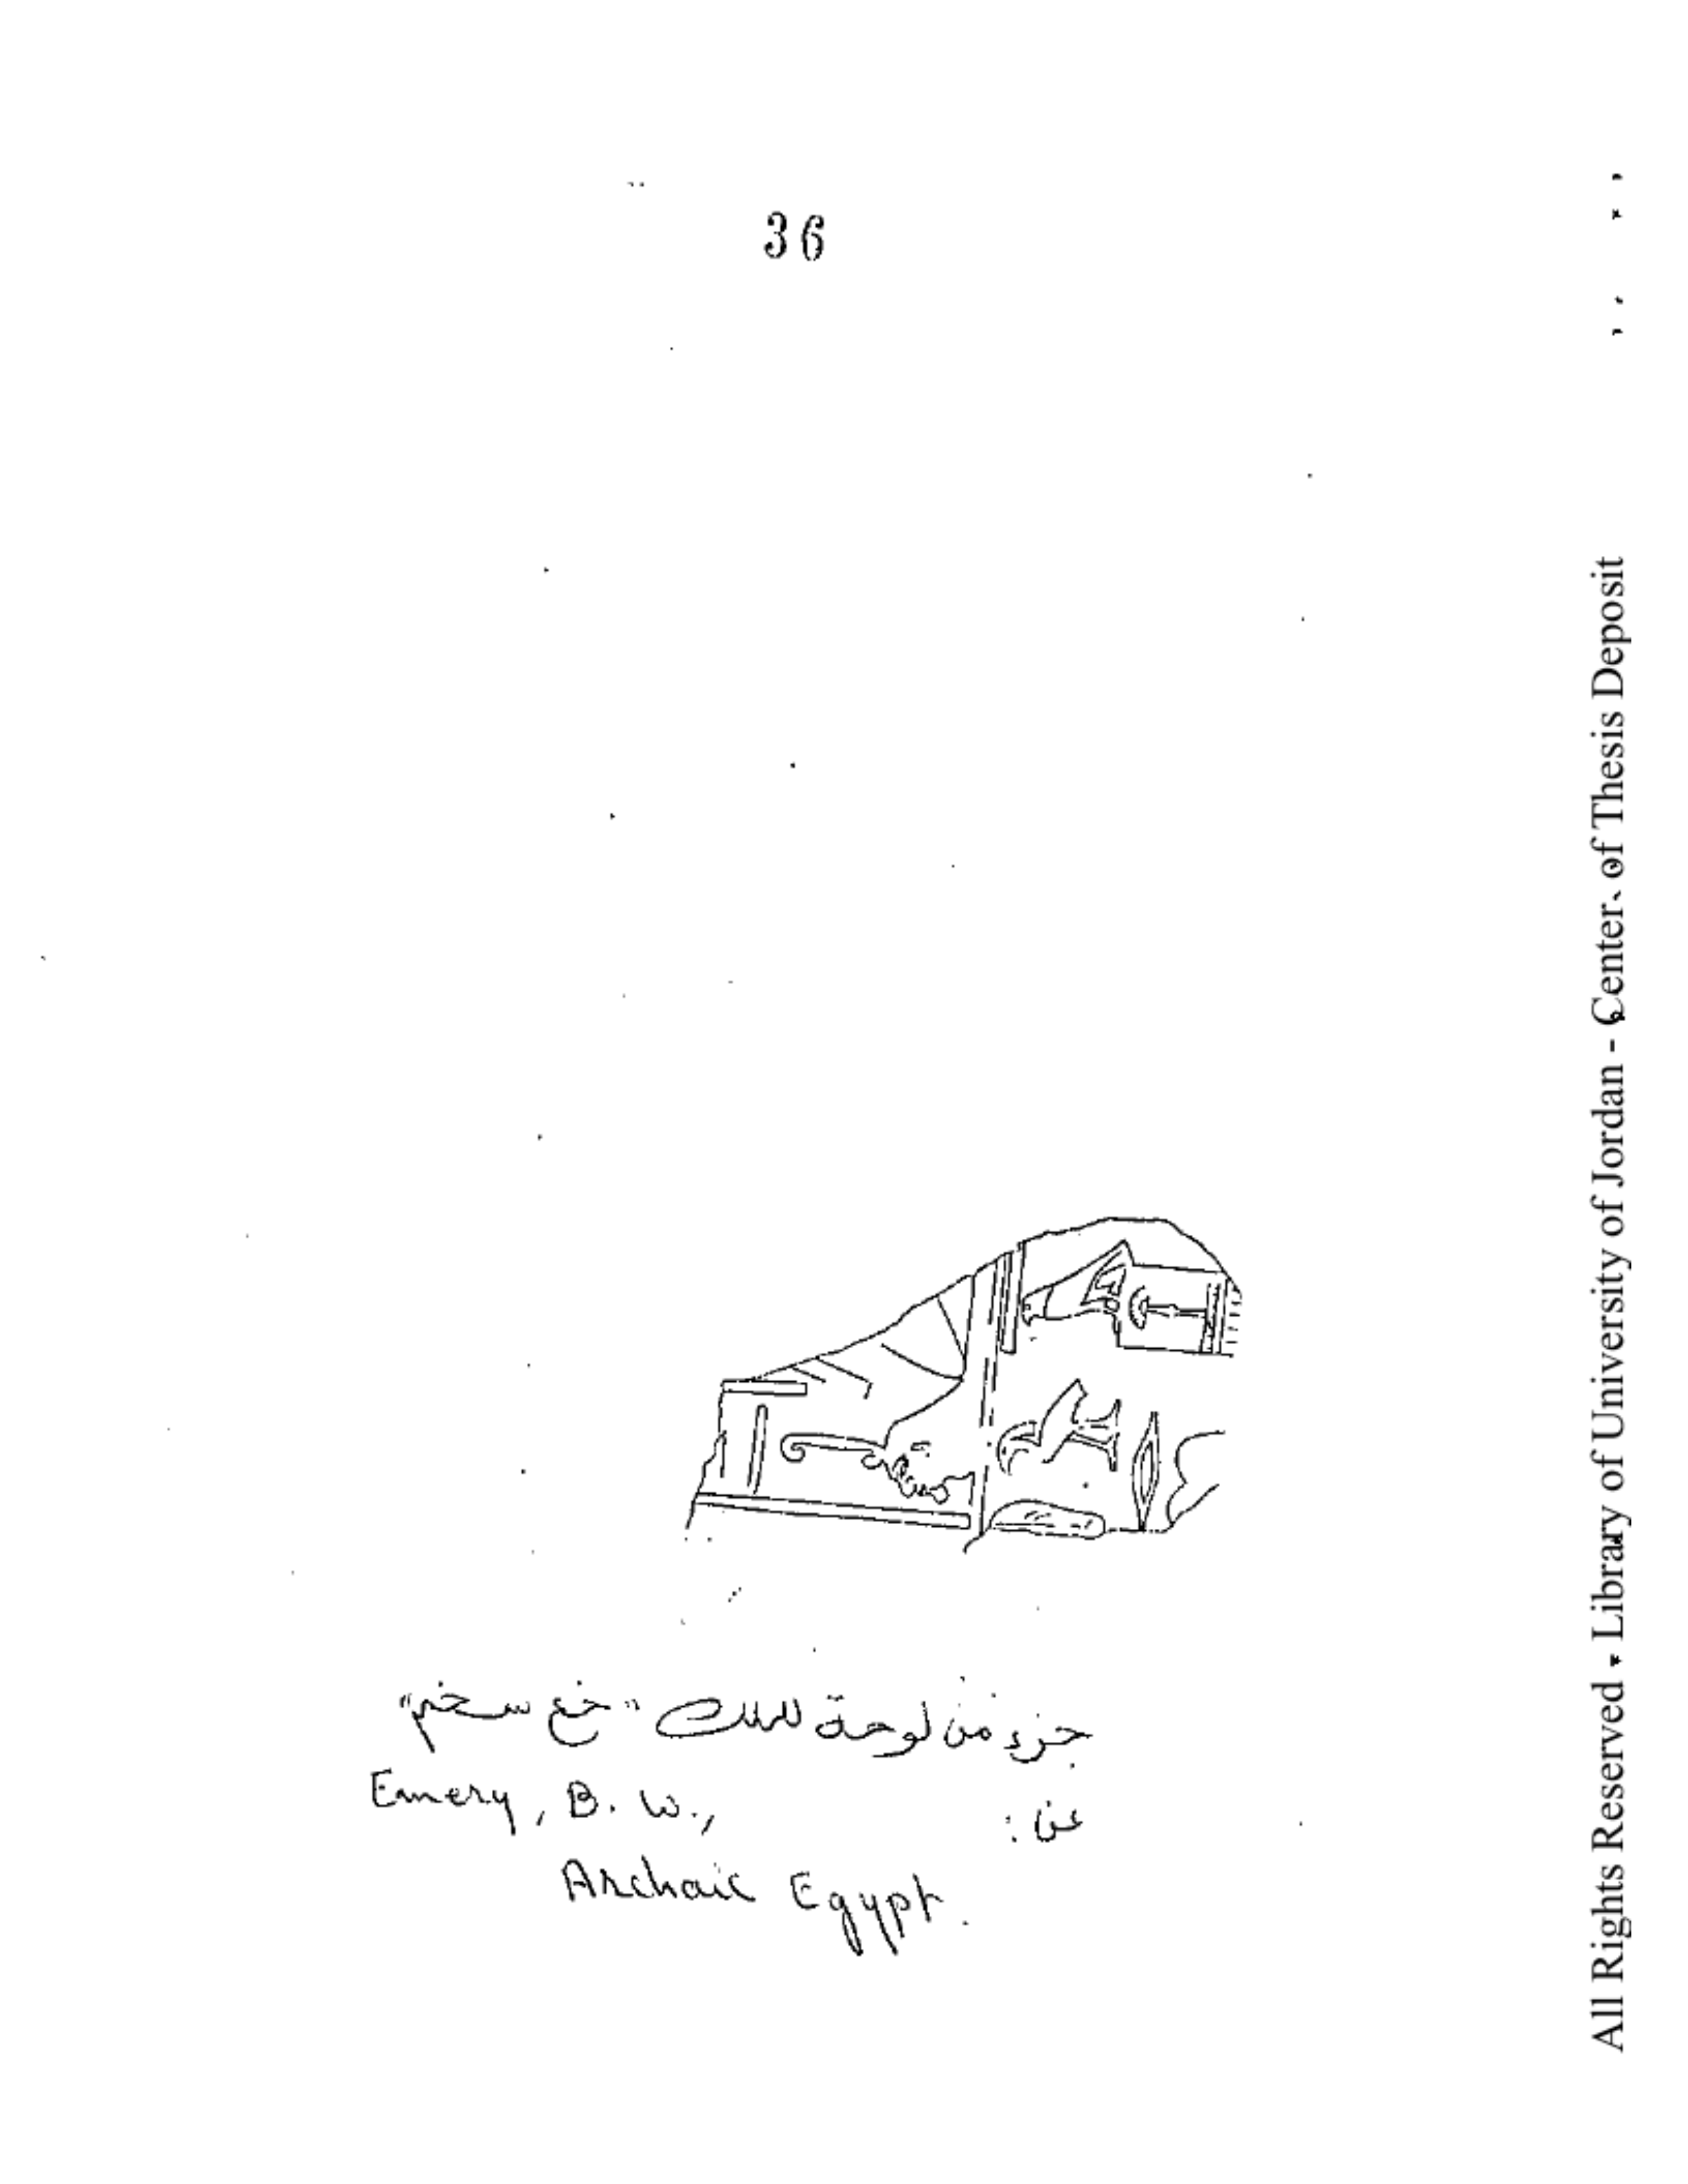 36
جزء من لوحة للملك "خع سخم"
عن :
Emery, B. W.,
Archaic Egypt.
All Rights Reserved - Library of University of Jordan - Center of Thesis Deposit